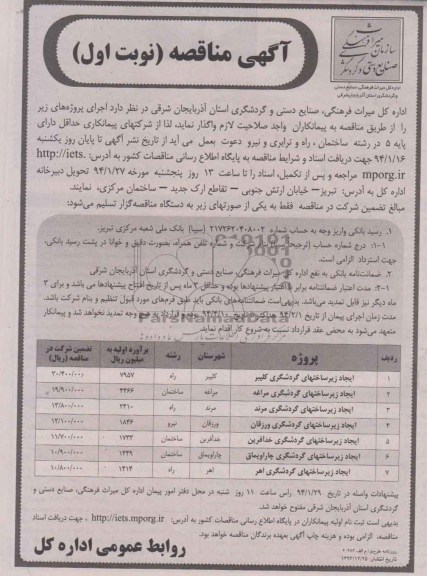 آگهی مناقصه (نوبت اول)
سازمان میراث فرهنگی
صنایع دستی و گردشگری
اداره کل میراث فرهنگی، صنایع دستی
و گردشگری استان آذربایجان شرقی
اداره کل میراث فرهنگی، صنایع دستی و گردشگری استان آذربایجان شرقی در نظر دارد اجرای پروژه‌های زیر
را از طریق مناقصه به پیمانکاران واجد صلاحیت لازم واگذار نماید، لذا از شرکتهای پیمانکاری حداقل دارای
پایه ۵ در رشته ساختمان ، راه و ترابری و نیرو دعوت بعمل می آید از تاریخ نشر آگهی تا پایان روز یکشنبه
۹۴/۱/۱۶ جهت دریافت اسناد و شرایط مناقصه به پایگاه اطلاع رسانی مناقصات کشور به آدرس: http://iets.
mporg.ir مراجعه و پس از تکمیل، اسناد را تا ساعت ۱۳ روز پنجشنبه مورخه ۹۴/۱/۲۷ تحویل دبیرخانه
اداره کل به آدرس: تبریز– خیابان ارتش جنوبی – تقاطع ارک جدید – ساختمان مرکزی، نمایند.
مبالغ تضمین شرکت در مناقصه فقط به یکی از صورتهای زیر به دستگاه مناقصه‌گزار تسلیم می‌شود:
۱. رسید بانکی واریز وجه به حساب شماره ۲۱۷۲۶۲۰۴۰۸۰۰۲ (سیبا) بانک ملی شعبه مرکزی تبریز.
۱–۱: درج شماره حساب و شماره تلفن همراه، بصورت دقیق و خوانا در پشت رسید بانکی،
جهت استرداد الزامی است.
۲. ضمانت‌نامه بانکی به نفع اداره کل میراث فرهنگی، صنایع دستی و گردشگری استان آذربایجان شرقی
۲–۱: مدت اعتبار ضمانتنامه برابر با اعتبار پیشنهادها بوده و حداقل ۳ ماه پس از تاریخ افتتاح پیشنهادها می باشد و برای ۳
ماه دیگر نیز قابل تمدید می‌باشد. بدیهی است ضمانتنامه‌های بانکی باید طبق فرم‌های مورد قبول تنظیم و بنام شرکت باشد.
مدت زمان اجرای پیمان از تاریخ ۹۴/۲/۱ و قرارداد به هیچ وجه تمدید نخواهد شد و پیمانکار
متعهد می‌شود به محض عقد قرارداد نسبت به شروع کار اقدام نماید.
ردیف پروژه شهرستان رشته برآورد اولیه به میلیون ریال تضمین شرکت در مناقصه (ریال)
۱ ایجاد زیرساختهای گردشگری کلیبر کلیبر راه ۷۹۵۷ ۳۰/۴۰۰/۰۰۰
۲ ایجاد زیرساختهای گردشگری مراغه مراغه ساختمان ۴۴۶۶ ۱۹/۹۰۰/۰۰۰
۳ ایجاد زیرساختهای گردشگری مرند مرند راه ۲۴۱۰ ۱۳/۸۰۰/۰۰۰
۴ ایجاد زیرساختهای گردشگری ورزقان ورزقان نیرو ۱۸۴۶ ۱۲/۱۰۰/۰۰۰
۵ ایجاد زیرساختهای گردشگری خدآفرین خدآفرین ساختمان ۱۷۳۳ ۱۱/۷۰۰/۰۰۰
۶ ایجاد زیرساختهای گردشگری چاراویماق چاراویماق ساختمان ۱۴۴۹ ۱۰/۹۰۰/۰۰۰
۷ ایجاد زیرساختهای گردشگری اهر اهر راه ۱۴۱۴ ۱۰/۸۰۰/۰۰۰
پیشنهادات واصله در تاریخ ۹۴/۱/۲۹ راس ساعت ۱۱ روز شنبه در محل دفتر امور پیمان اداره کل میراث فرهنگی، صنایع دستی و
گردشگری استان آذربایجان شرقی مفتوح خواهد شد.
بدیهی است ثبت نام اولیه پیمانکاران در پایگاه اطلاع رسانی مناقصات کشور به آدرس: http://iets.mporg.ir ، جهت دریافت اسناد
مناقصه، الزامی بوده و هزینه چاپ آگهی بعهده برندگان مناقصه خواهد بود.
روابط عمومی اداره کل
تاریخ انتشار: ۱۳۹۳/۱۲/۲۵
ParsNamadData